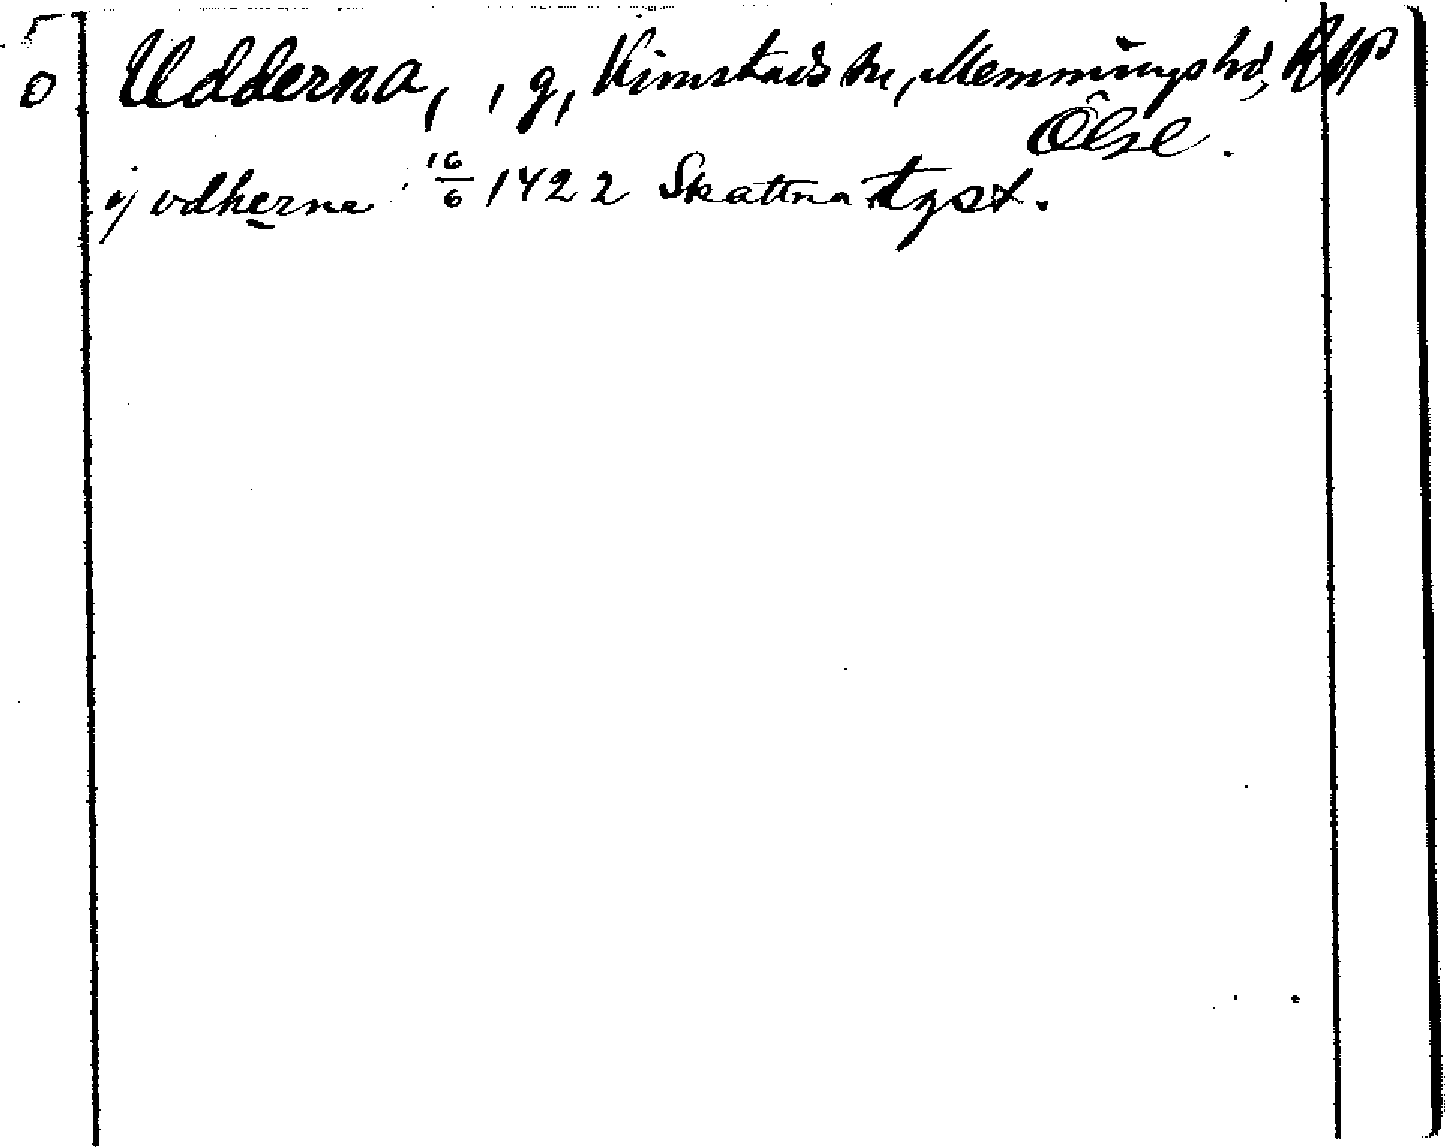 Udderna, , g, Kimstads sn, Memmings hd,
Ölse.
ij vdherne 16/6 1422 Skattna tgst.